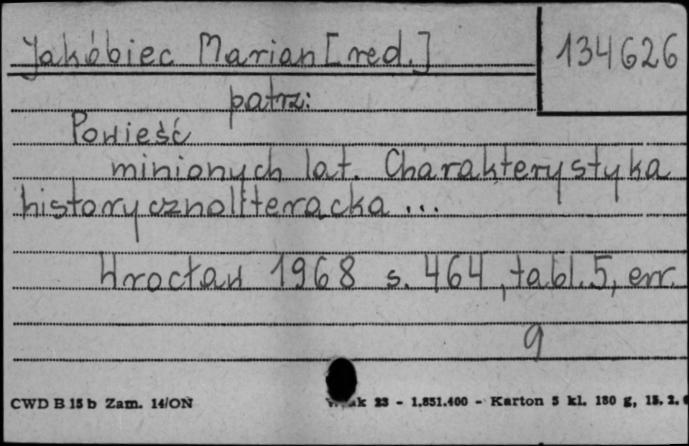 Jakóbiec Marian [red.]
134626
patrz:
Powieść
minionych lat. Charakterystyka
historycznoliteracka ...
Wrocław 1968 s. 464, tabl. 5, err.
9
CWD B 15 b Zam. 14/ON
23 - 1.851.400 - Karton 5 kl. 180 g,